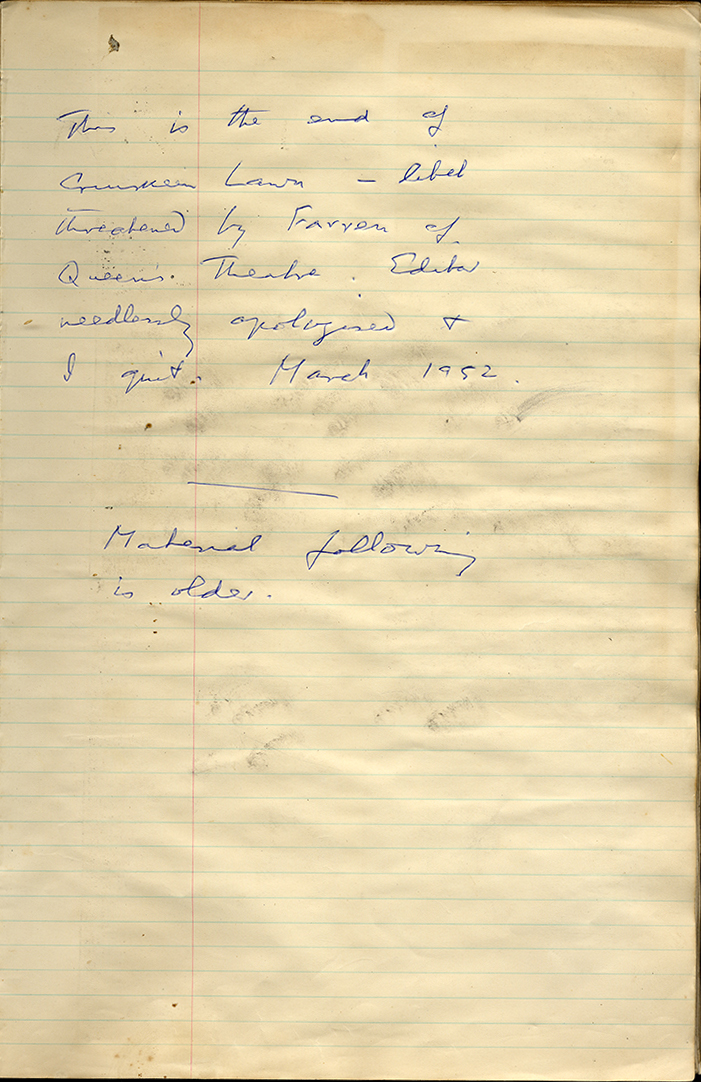 This is the end of
Cruiskeen Lawn – libel
threatened by Farren of
Queen's Theatre. Editor
needlessly apologised &
I quit. March 1952.
Material following
is older.